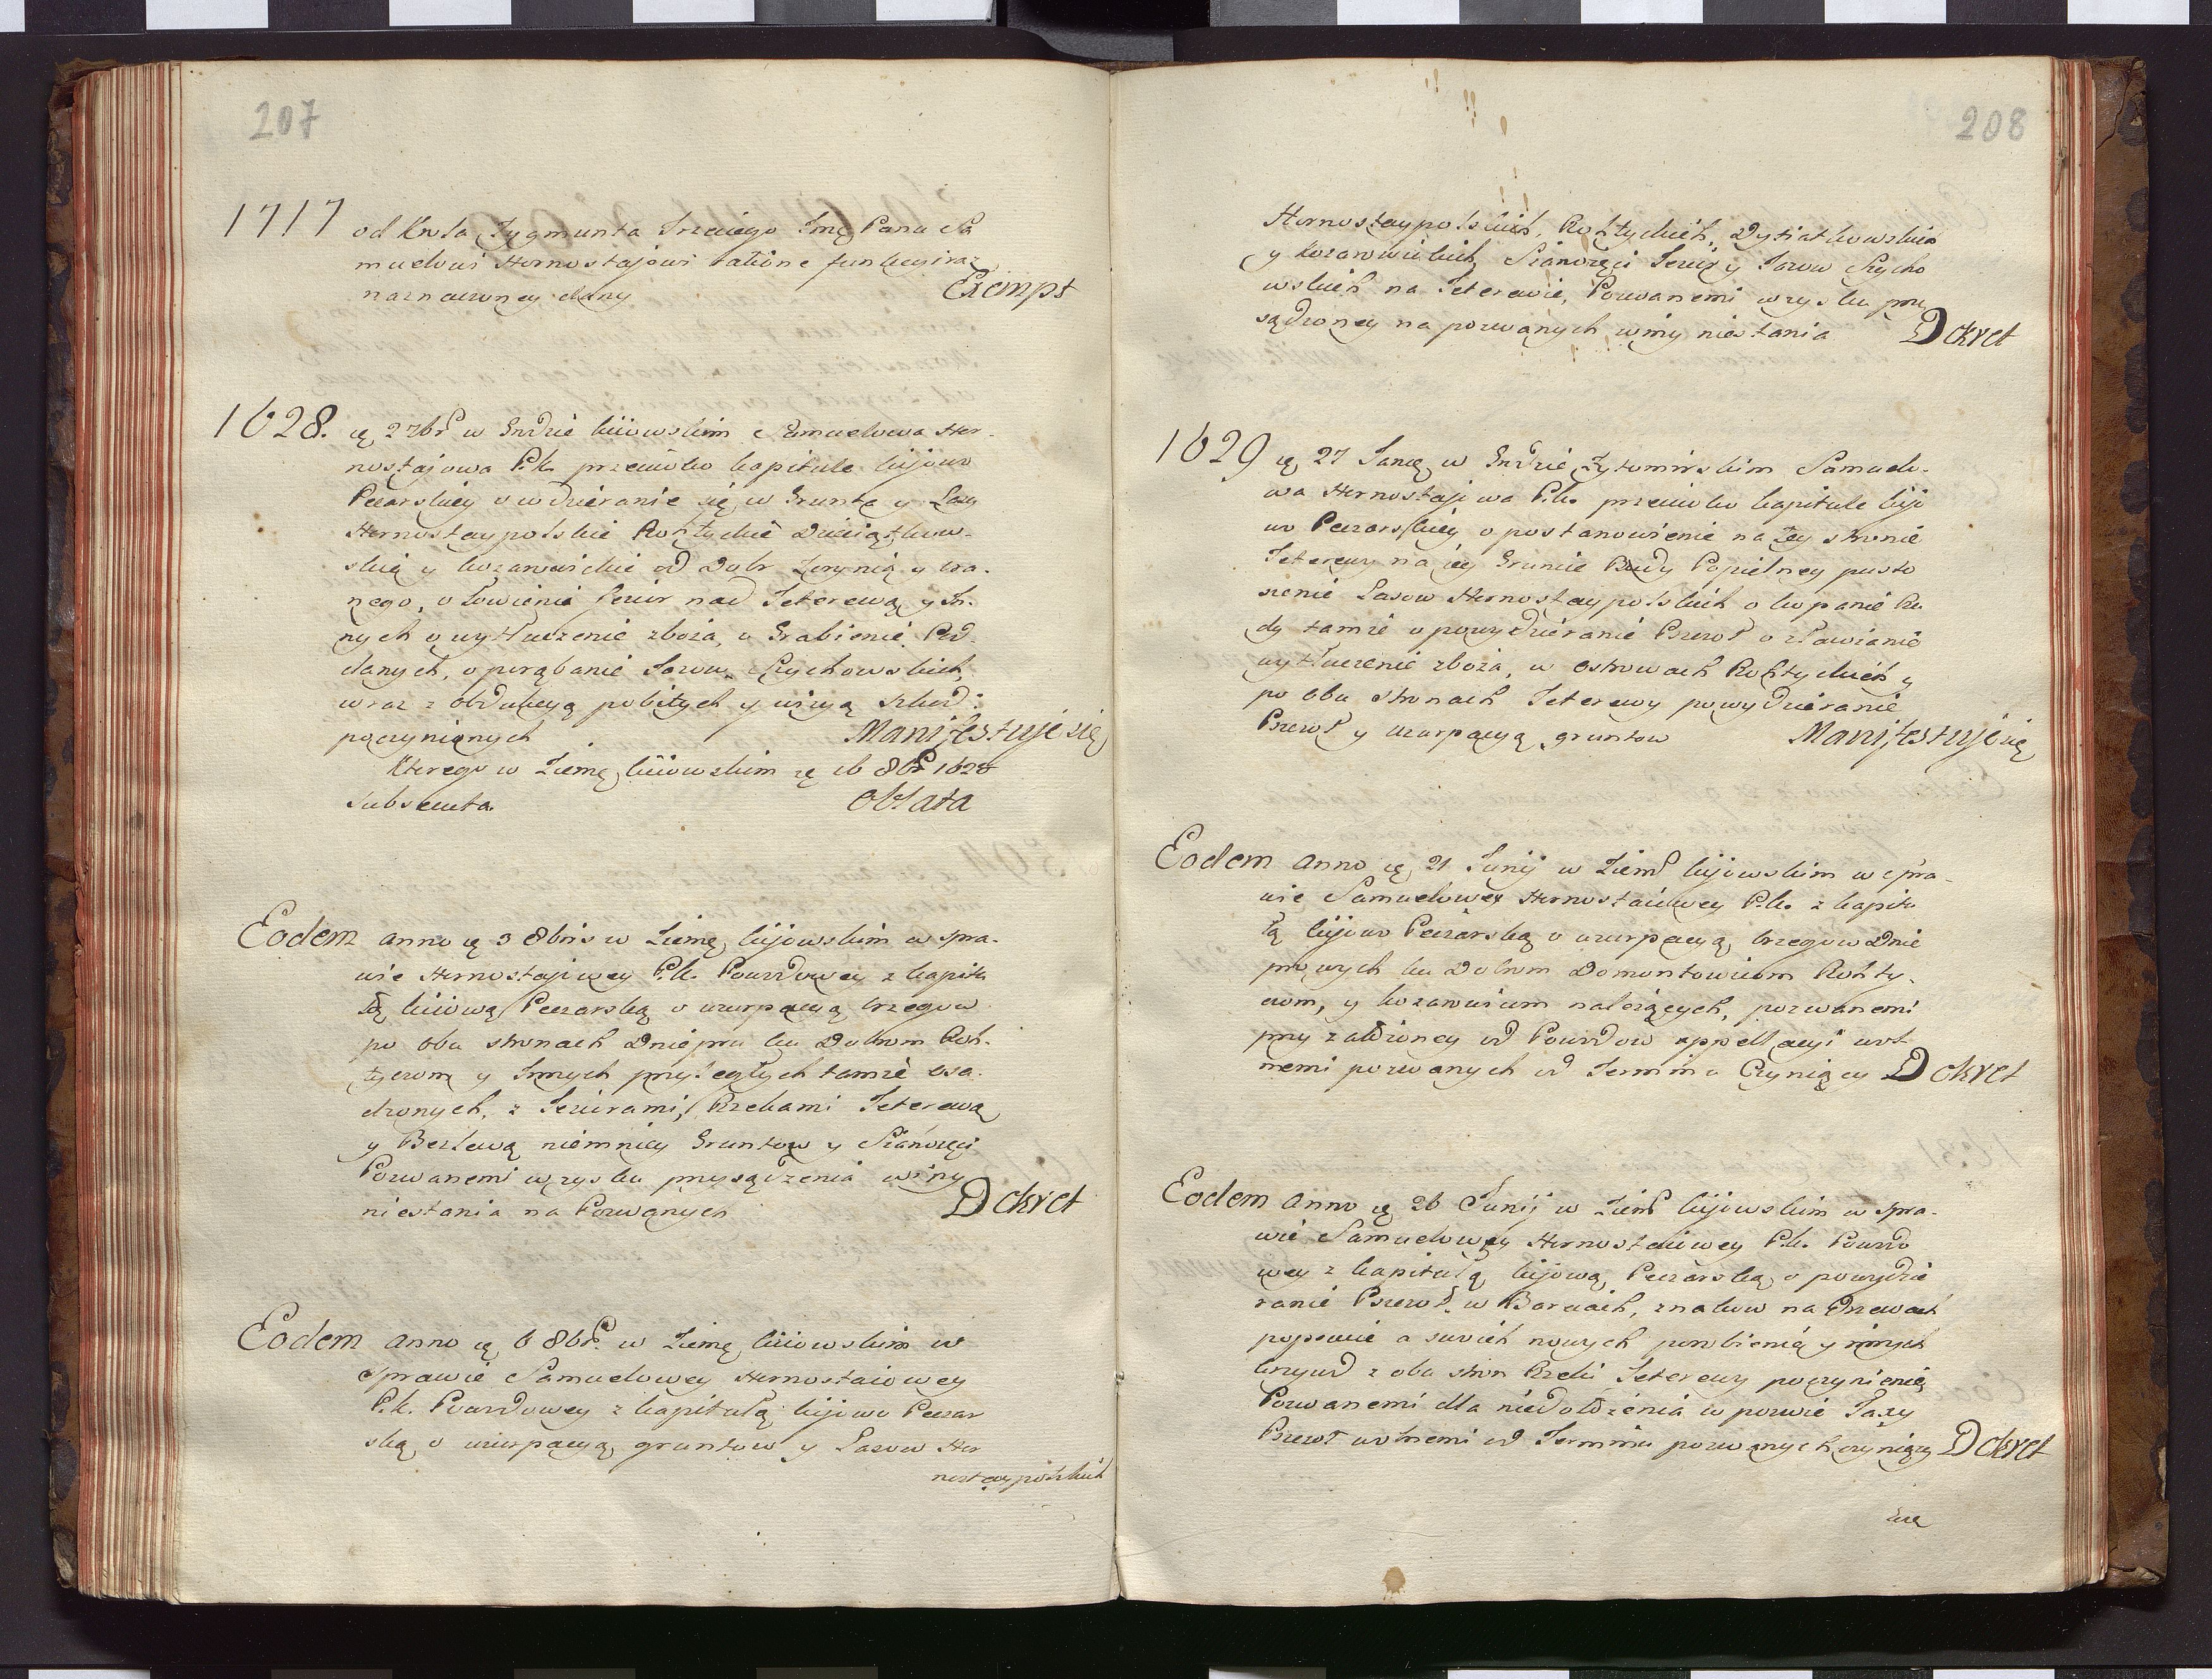 207
1717 od Krola Zygmunta Trzeciego Jmę Panu Sa
muelowi Hornostajowi ratione funkcyi raz
naznaczoney dany Exempt
1628. ię 27br w Grdzie kiiowskim Samuelowa Hor-
nostajowa P.k. przeciwko kapitule kijowo
Peczarskiey o wdzieranie się w Grunta y Lasy
Hornostaypolskie Rohtyckie Dzieciątkow-
skie y kozarowickie od Dobr Zorynią y ...
nego, o Łowienie Jezior nad Teterewą y In-
nych o wytłuczenie zboża, o Grabienie Pod-
danych, o porąbanie Jazow Szychowskich,
wraz z obdukcyą pobitych y wizyą szkod:
poczynionych Manifestuje się
Ktorego w Ziemę kiiowskim ię 16 8br 1628
Subsecuta Oblata
Eodem anno ię 3 8bris w Ziemę kijowskim w spra-
wie Hornostajowey P.k. Powodowey z kapitu
łą kiiową Peczarską o uzurpacyą brzegow
po obu stronach Dniepru ku Dobrom Roh-
tyczom y Innych przyległych tamże osa-
dzonych, z Jeziorami, Rzekami Teterewą
y Bezlewą niemniey Gruntow y Sianożęci
Pozwanemi w zysku przysądzenia winy
niestania na Pozwanych Dekret
Eodem anno ię 6 8br. w Ziemę kiiowskim w
sprawie Samuelowey Hornostaiowey
P.k. Powodowey z kapitułą kijowo Peczar
ską o uzurpacyą gruntow y Lasow Hor
nostaypolskich
208
Hornostaypolskich, Rohtyckich, Dytiatkowskich
y kozarowickich Sianożęci Jezior y Jazow Szycho
wskich na Teterewie, Pozwanemi w zysku przy
sądzoney na pozwanych winy niestania Dekret
1629 ię 27 Januę w Grdzie Żytomirskim Samuelo-
wa Hornostajowa P.k. przeciwko kapitule kijo
wo Peczarskiey o postanowienie na tey stronie
Teterewy na iey Gruncie Budy Popielney pusto
szenie Lasow Hornostaypolskich o kopanie Ru
dy tamże o powydzieranie Pszczoł o zławianie
wytłuczenie zboża, w ostrowach Rohtyckich y
po obu stronach Teterewy powydzieranie
Pszczoł y uzurpacyą gruntow Manifestuje się
Eodem anno ię 21 Junij w Ziemś kijowskim w spra-
wie Samuelowey Hornostaiowey P.k. z kapitu
łą kijowo Peczarską o uzurpacyą brzegow Dnie
prowych ku Dobrom Domontowiom Rohty-
czom, y kozarowiom należących, pozwanemi
przy założoney od Powodow appellacyi wol-
nemi pozwanych od Terminu Czyniący Dekret
Eodem anno ię 26 Junij w Ziemś kijowskim w spra-
wie Samuelowey Hornostaiowey P.k. Powodo
wey z kapitułą kijową Peczarską o powydzie
ranie Pszczoł w Barciach, znakow na Drzewach
popsucie a swoich nowych porobienia y innych
krzywd z obu stron Rzeki Teterewy poczynienie
Pozwanemi dla niedołożenia w pozwie Taxy
Pszczoł wolnemi od Terminu pozwanych czyniący Dekret